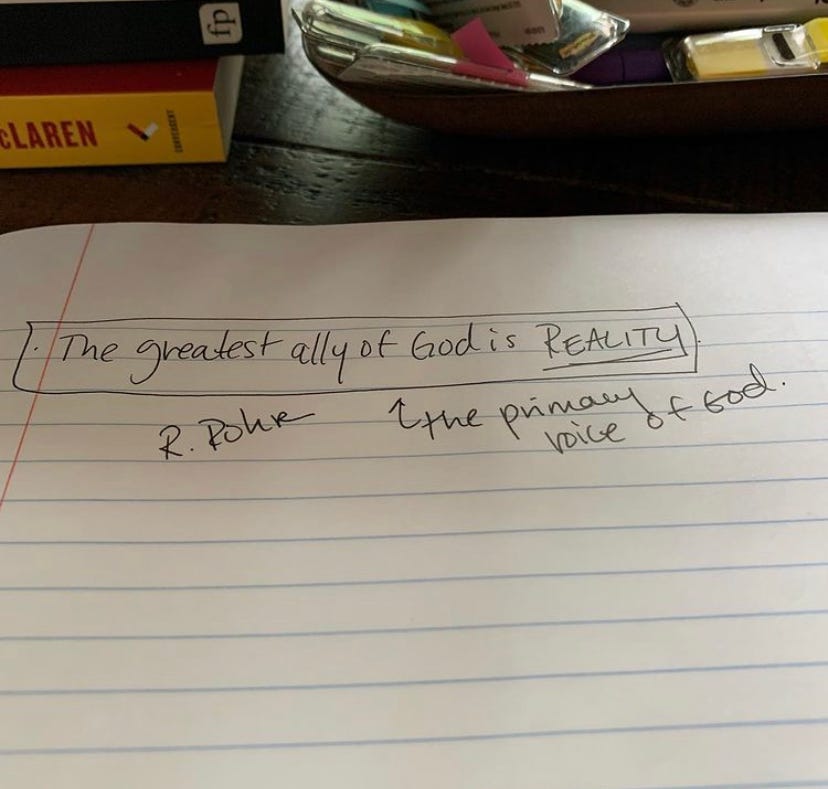 fp
cLAREN
CONVERGENT
The greatest ally of God is REALITY.
R. Rohr
↑ the primary
voice of God.